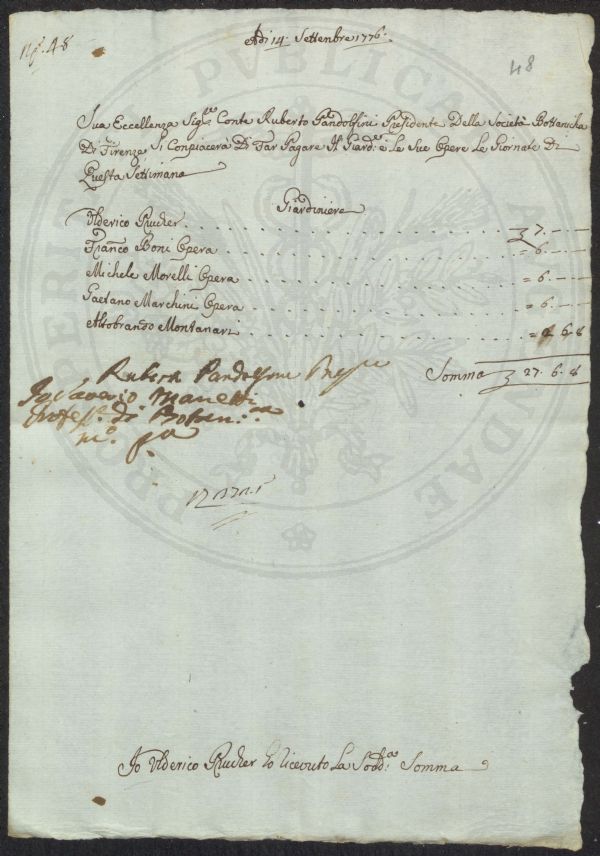 N.º 48
Adi 14. Settenbre 1776.
48
Sua Eccellenza Sig.re Conte Ruberto Pandolfini Presidente Della Società Bottanicha
Di Firenze, Si Conpiacerà Di Far Pagare Al Giard.e e Le Sue Opere Le Giornate Di
Questa Settimana
Giardiniere
Ulderico Prucher . . . 7. — —
Franco Boni Opera . . . = 6. — —
Michele Morelli Opera . . . = 6. — —
Gaetano Marchini Opera . . . = 6. — —
Altobrando Montanari . . . = 2. 6. 8
Somma 27. 6. 8
Ruberto Pandolfini
Io Saverio Manetti
Profes.e di Botan.ca
m.o pa
Io Ulderico Prucher ho riceuto La Sodd.a Somma
PROSPERITATI PVBLICAE AVGENDAE